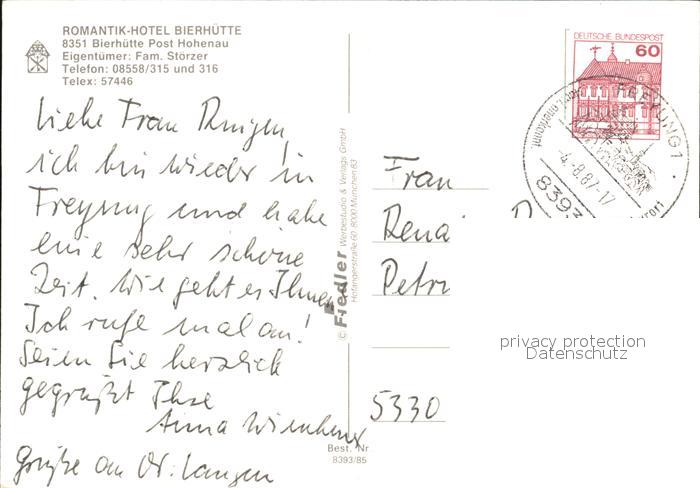 ROMANTIK-HOTEL BIERHÜTTE
8351 Bierhütte Post Hohenau
Eigentümer: Fam. Störzer
Telefon: 08558/315 und 316
Telex: 57446
Liebe Frau
ich bin wieder in
Freyung und habe
eine sehr schöne
Zeit. Wie geht es Ihnen
Ich rufe mal an!
Seien Sie herzlich
gegrüßt Ihre
Anna
Grüße an Dr. Langen
© Fiedler Werbestudio & Verlags GmbH
Hofangerstraße 60 · 8000 München 83
Best. Nr
8393/85
DEUTSCHE BUNDESPOST
60
FREYUNG 1
-4.-8.87-17
8393
Frau
Rena
Petr
5330
privacy protection
Datenschutz